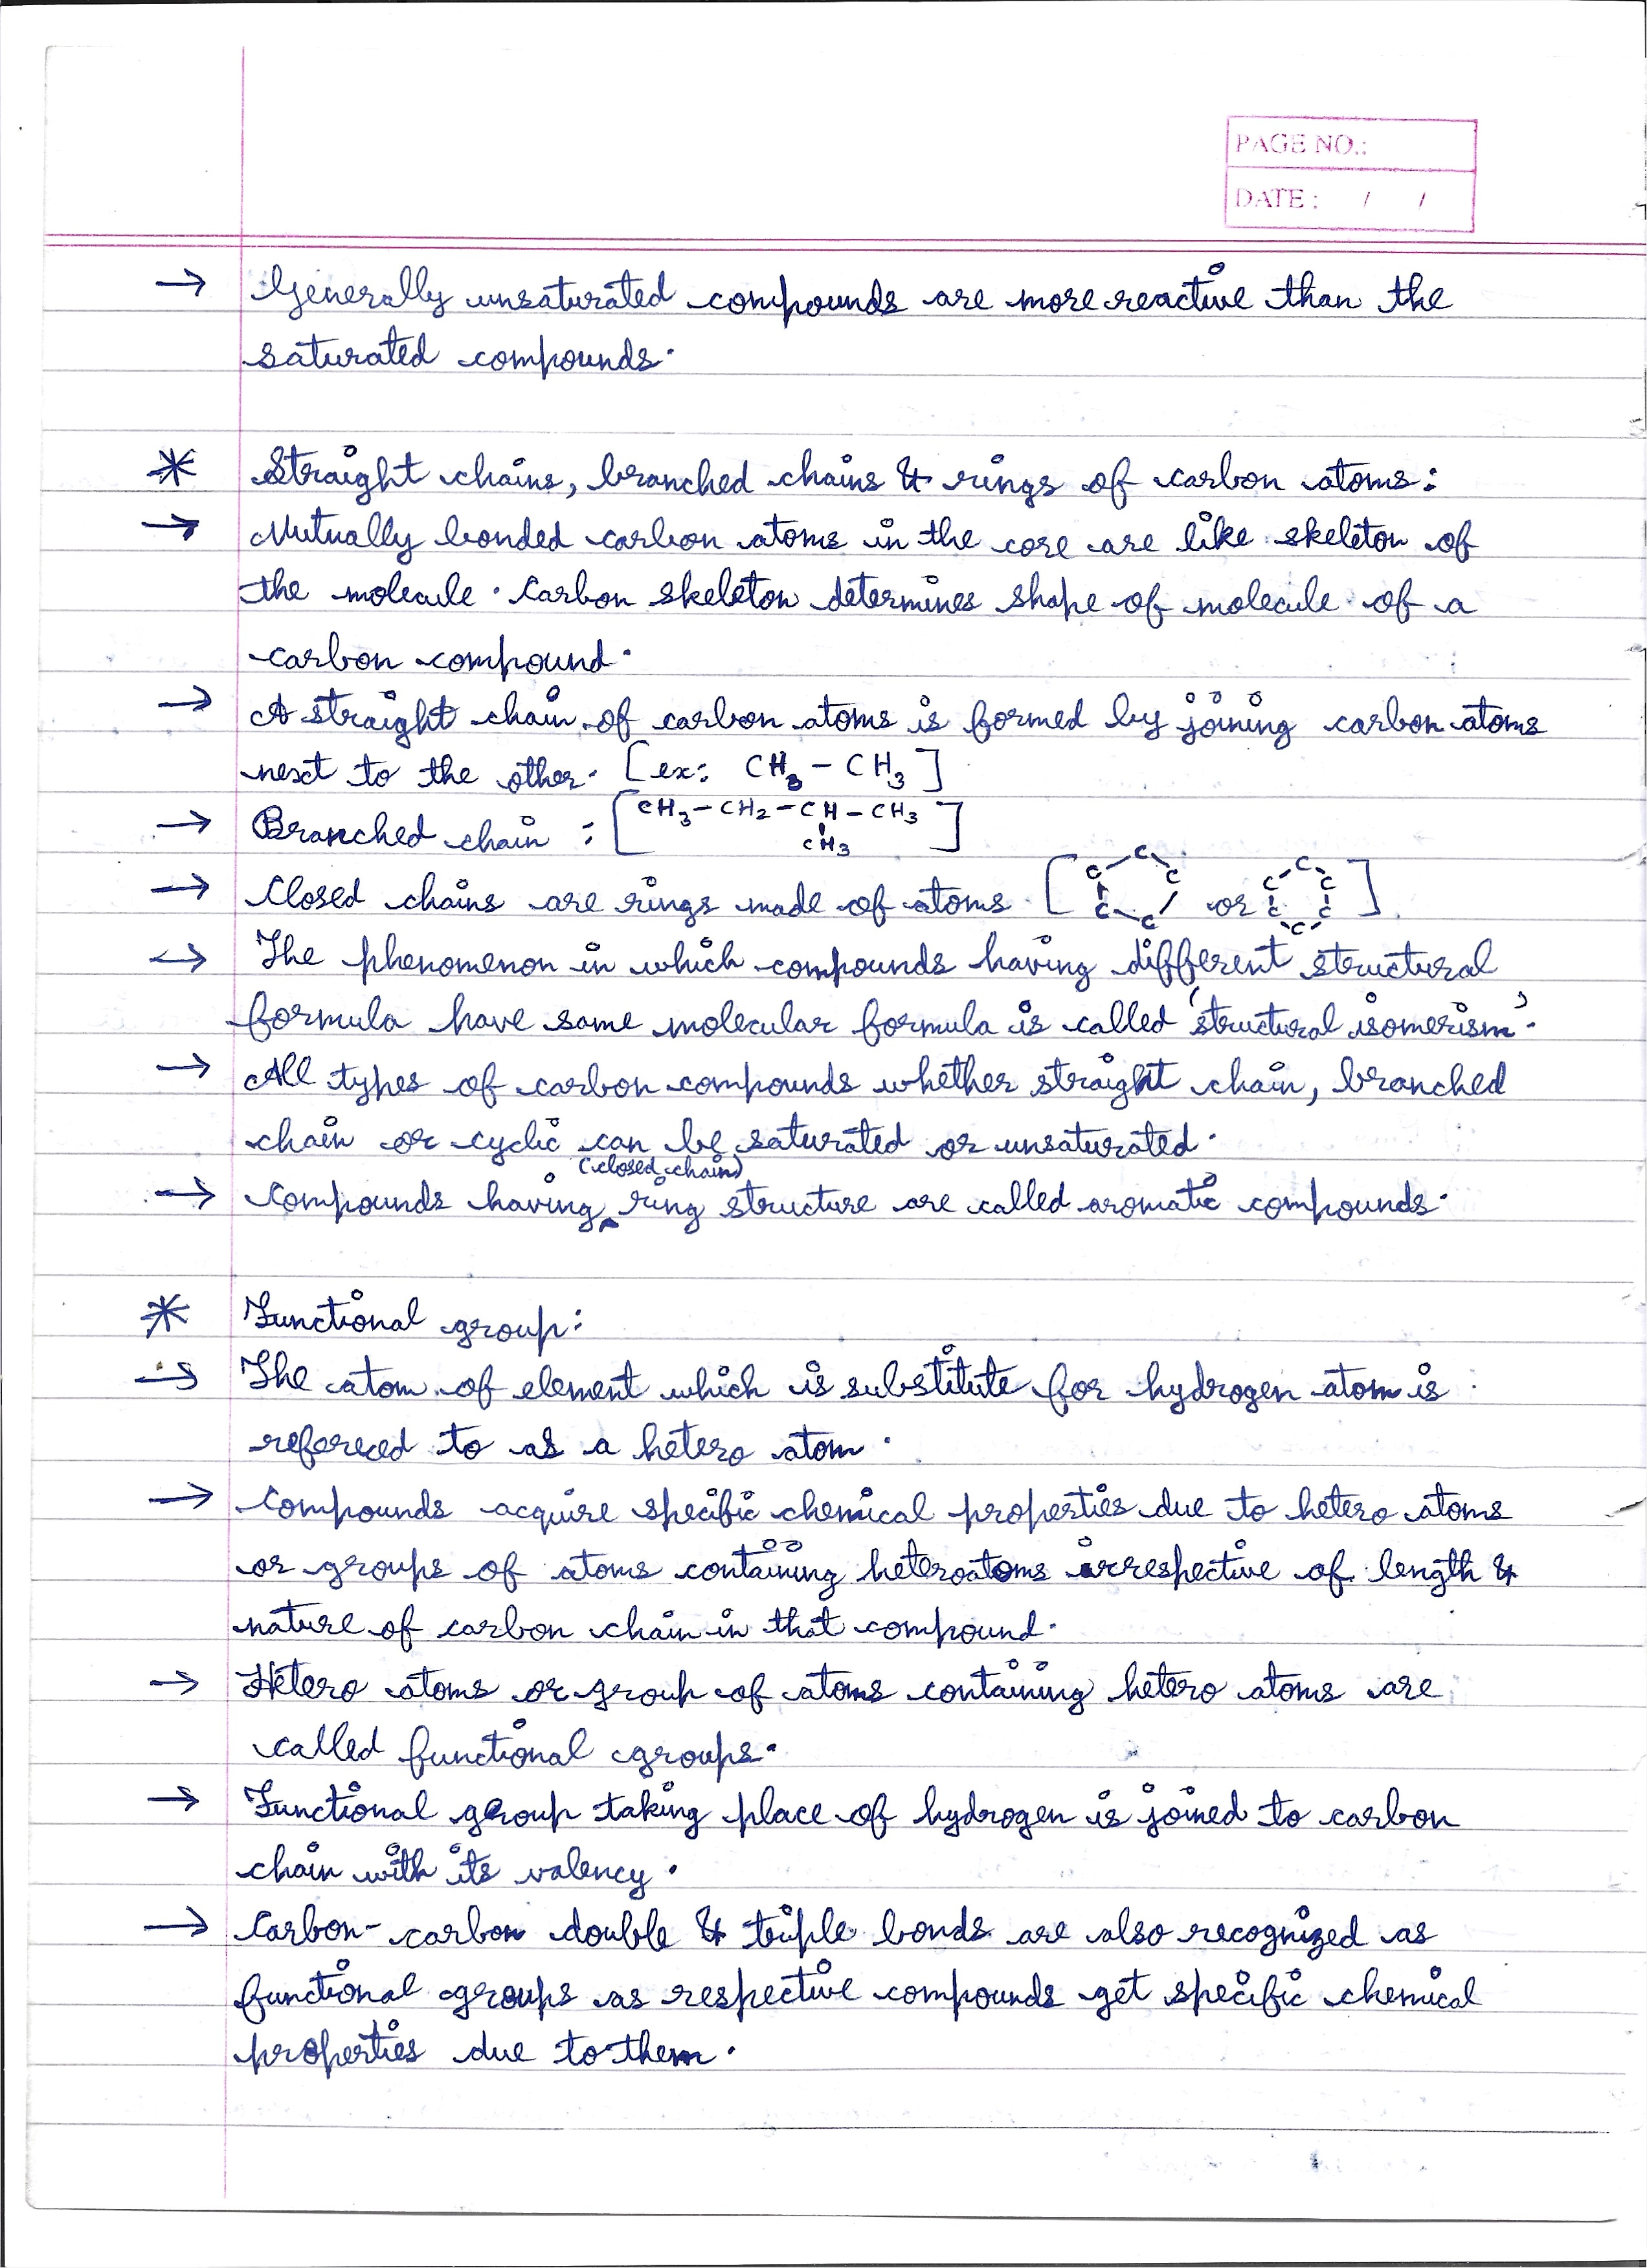 PAGE NO.:
DATE : / /
→ Generally unsaturated compounds are more reactive than the
saturated compounds.
* Straight chains, branched chains & rings of carbon atoms:
→ Mutually bonded carbon atoms in the core are like skeleton of
the molecule. Carbon skeleton determines shape of molecule of a
carbon compound.
→ A straight chain of carbon atoms is formed by joining carbon atoms
next to the other. [ex: CH₃ - CH₃]
→ Branched chain : [CH₃-CH₂-CH-CH₃]
CH₃
→ Closed chains are rings made of atoms [C C C C C or C C C C C C].
→ The phenomenon in which compounds having different structural
formula have same molecular formula is called 'structural isomerism'.
→ All types of carbon compounds whether straight chain, branched
chain or cyclic can be saturated or unsaturated.
(closed chain)
→ Compounds having ring structure are called aromatic compounds.
* Functional group:
→ The atom of element which is substitute for hydrogen atom is
refereced to as a hetero atom.
→ Compounds acquire specific chemical properties due to hetero atoms
or groups of atoms containing heteroatoms irrespective of length &
nature of carbon chain in that compound.
→ Hetero atoms or group of atoms containing hetero atoms are
called functional groups.
→ Functional group taking place of hydrogen is joined to carbon
chain with its valency.
→ Carbon-carbon double & triple bonds are also recognized as
functional groups as respective compounds get specific chemical
properties due to them.